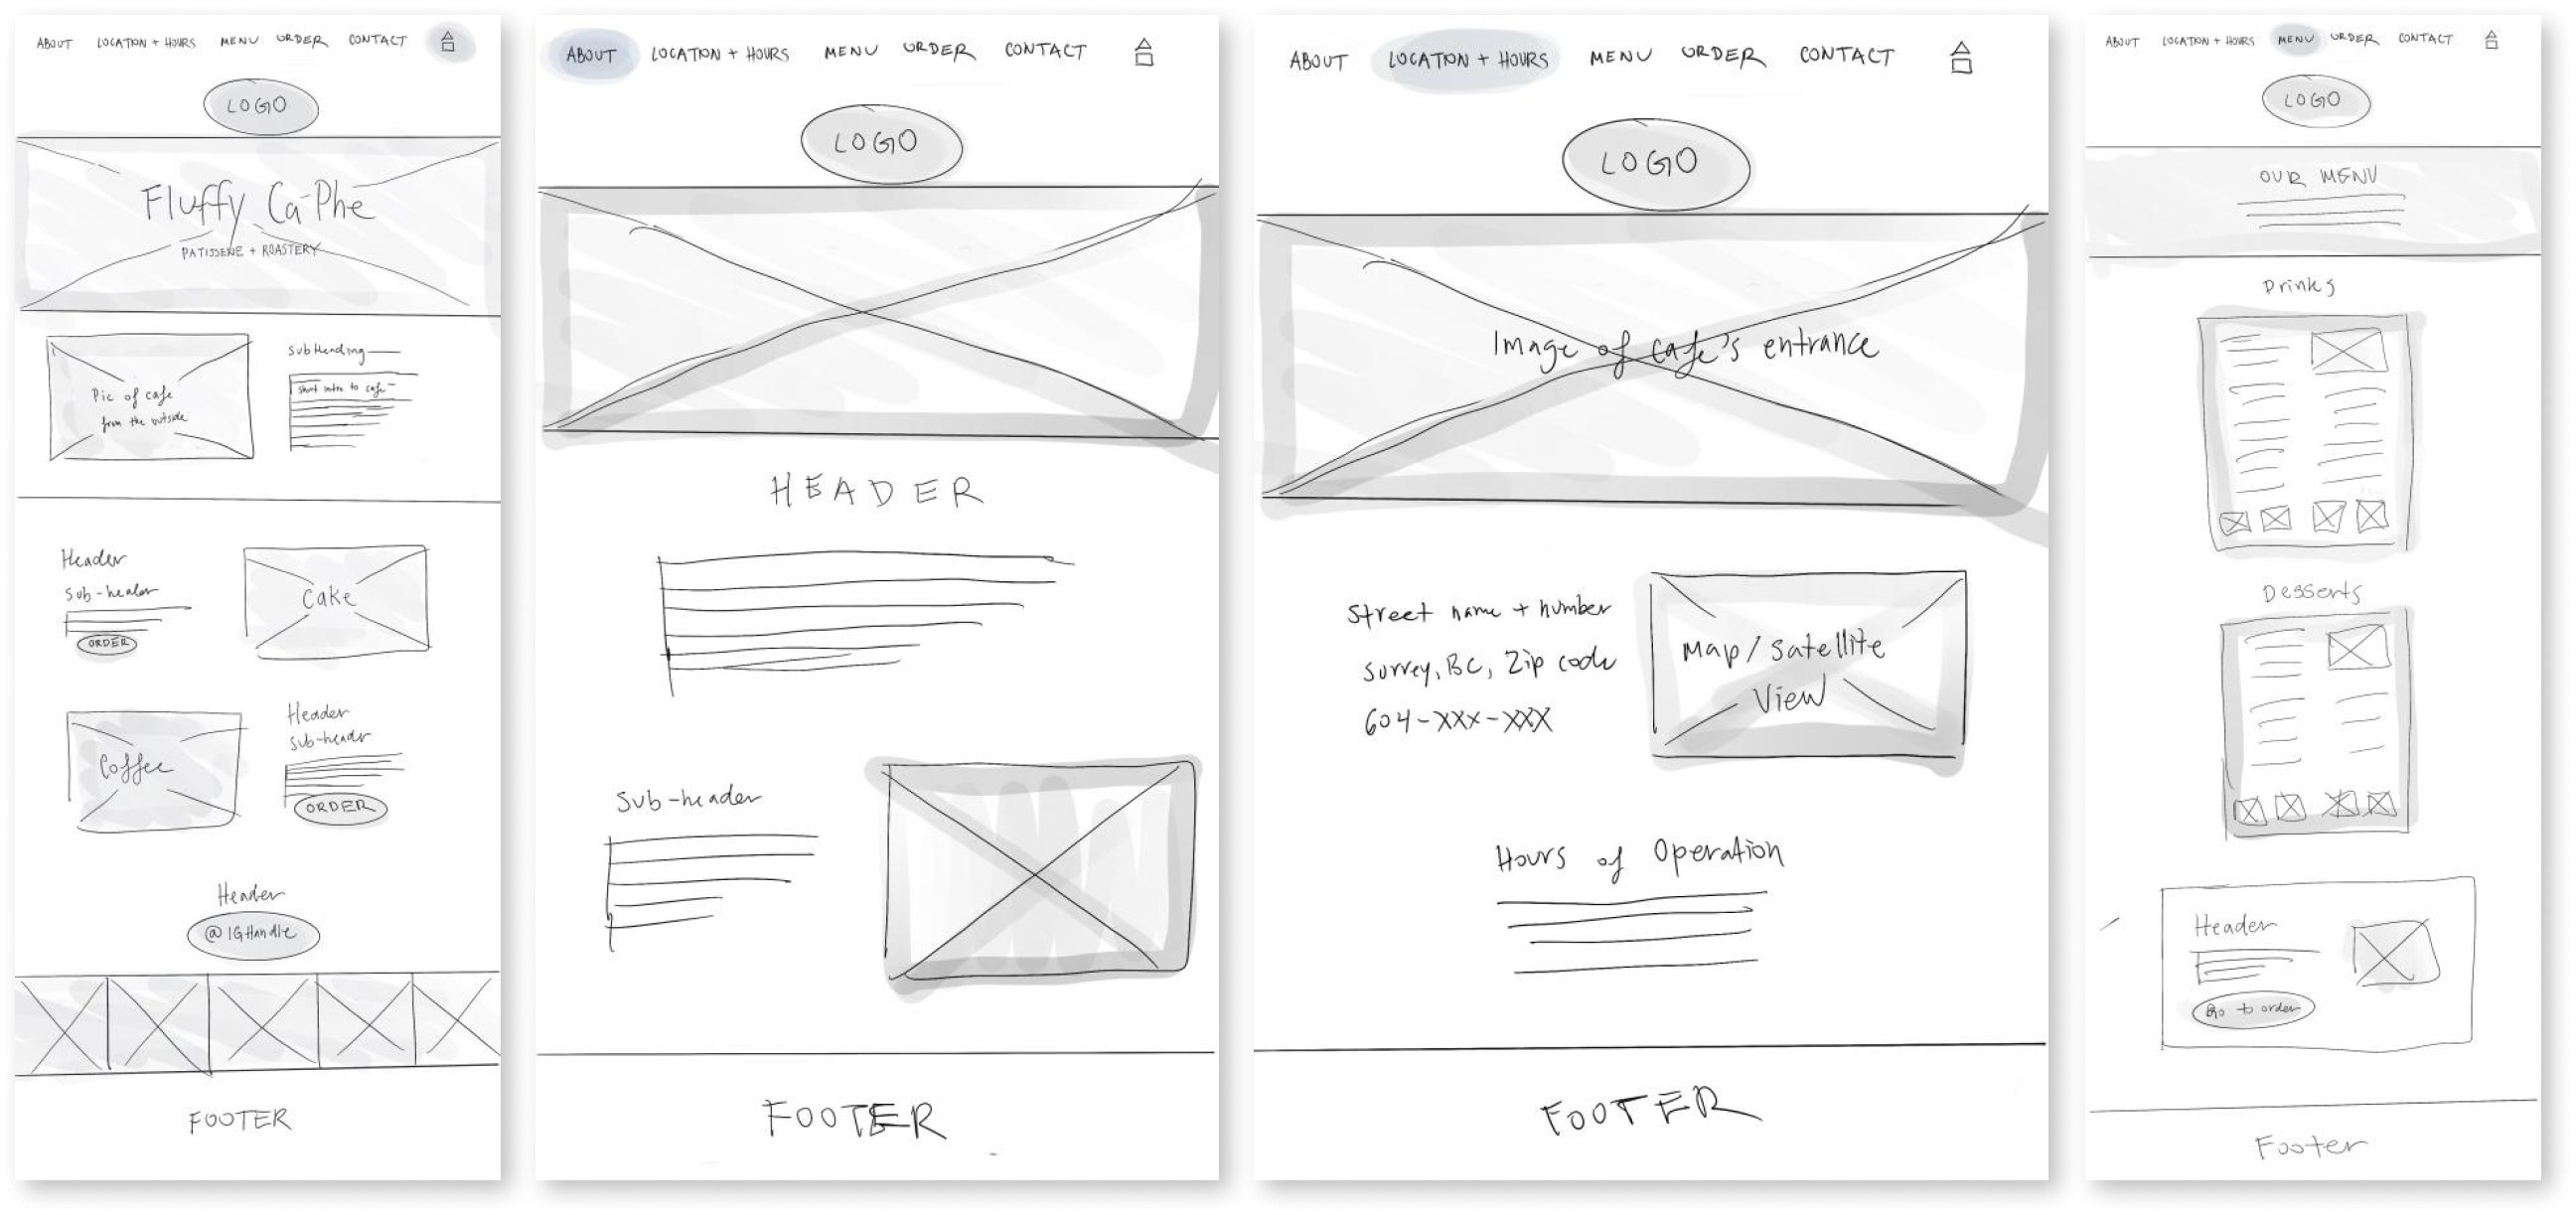 ABOUT LOCATION + HOURS MENU ORDER CONTACT
LOGO
Fluffy Ca Phe
PATISSERIE + ROASTERY
Pic of cafe
from the outside
SubHeading
Short intro to cafe
Header
Sub-header
ORDER
Cake
Coffee
Header
Sub-header
ORDER
Header
@IGHandle
FOOTER
ABOUT LOCATION + HOURS MENU ORDER CONTACT
LOGO
HEADER
Sub-header
FOOTER
ABOUT LOCATION + HOURS MENU ORDER CONTACT
LOGO
Image of cafe's entrance
Street name + number
Surrey, BC, Zip code
604-XXX-XXX
Map/Satellite
View
Hours of Operation
FOOTER
ABOUT LOCATION + HOURS MENU ORDER CONTACT
LOGO
OUR MENU
Drinks
Desserts
Header
Go to order
Footer